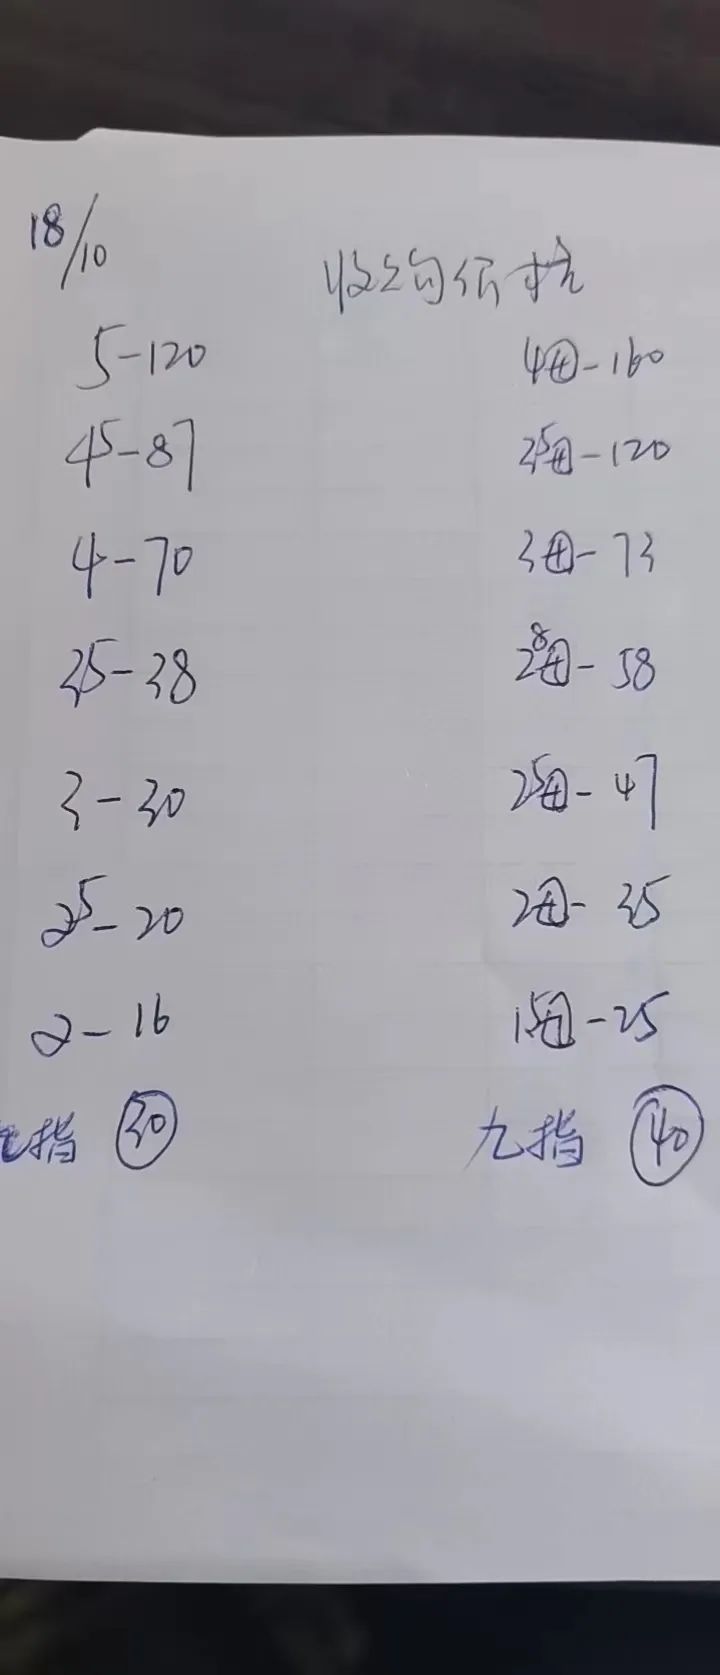 18/10
收购价格
5-120 4母-160
4⁵-87 35母-120
4-70 3母-73
35-38 2⁸母-58
3-30 25母-47
2⁵-20 2母-35
2-16 15母-25
指 30 九指 40